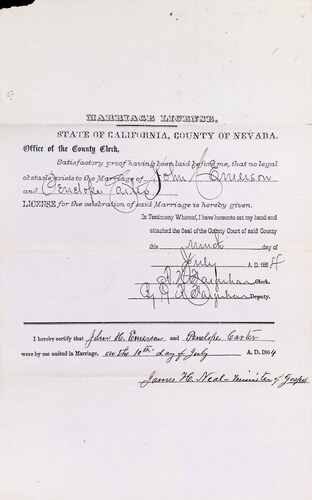 MARRIAGE LICENSE.
STATE OF CALIFORNIA, COUNTY OF NEVADA.
Office of the County Clerk,
Satisfactory proof having been laid before me, that no legal
obstacle exists to the Marriage of John H Emerson
and Penelope Carter
LICENSE for the celebration of said Marriage is hereby given.
In Testimony Whereof, I have hereunto set my hand and
attached the Seal of the County Court of said County
this day of
July A. D. 1864
Clerk.
By Deputy.
I hereby certify that John H. Emerson and Penelope Carter
were by me united in Marriage, on the 10th day of July A. D. 1864
James H. Neal - minister of Gospel